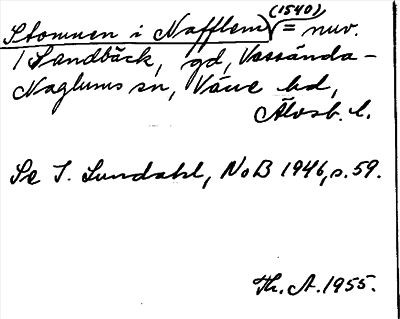 Stommen i Nafflem (1540) = nuv.
1 Sandbäck, gd, Vassända-
Naglums sn, Väne hd,
Älvsb. l.
Se I. Lundahl, NoB 1946, s. 59.
Th. A. 1955.